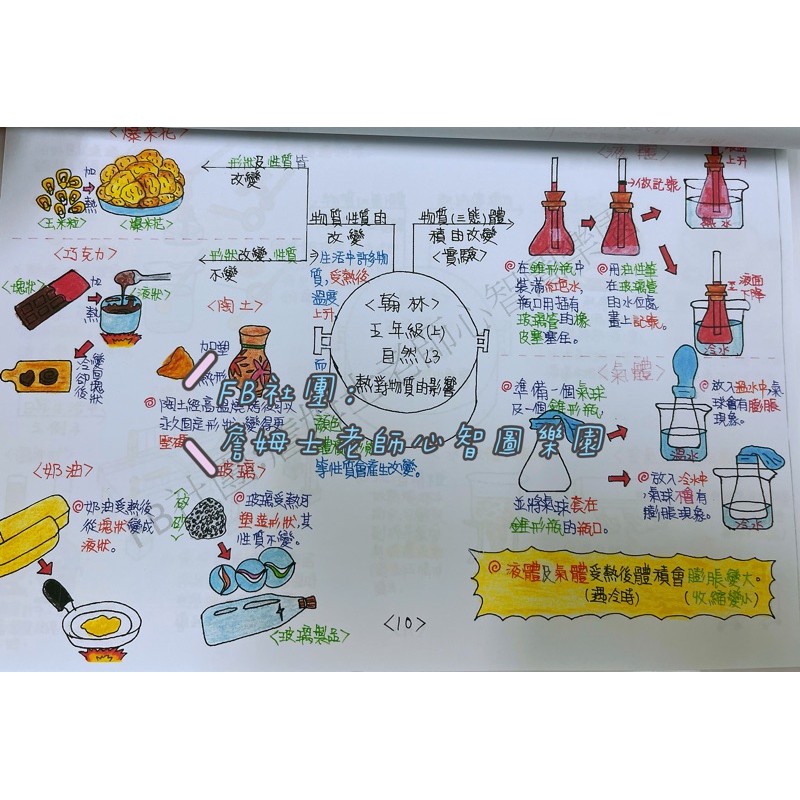 <爆米花>
加
熱
<玉米粒>
<爆米花>
形狀及性質皆
改變
<巧克力>
<塊狀>
加
熱
<液狀>
冷卻後
變回塊狀
形狀改變,性質
不變
<陶土>
加塑
熱形
◎陶土經高溫燒烤後可以
永久固定形狀,變得更
堅硬
<奶油>
◎奶油受熱後
從塊狀變成
液狀。
<玻璃>
矽砂
◎玻璃受熱可
塑造形狀,其
性質不變。
<玻璃製品>
物質性質的
改變
生活中許多物
質,受熱後
溫度
上升
而
顏色
等性質會產生改變。
<翰林>
五年級(上)
自然 L3
熱對物質的影響
物質(三態)體
積的改變
<實驗>
<液體>
做記號
液面
上升
熱水
◎在錐形瓶中
裝滿紅色水,
瓶口用插有
玻璃管的橡
皮塞塞住。
◎用油性筆
在玻璃管
的水位處
畫上記號。
液面
下降
冷水
<氣體>
◎準備一個氣球
及一個錐形瓶
並將氣球套在
錐形瓶的瓶口。
◎放入溫水中,氣
球會有膨脹
現象。
溫水
◎放入冷水中,
氣球不會有
膨脹現象。
冷水
◎液體及氣體受熱後體積會膨脹變大。
(遇冷時)
(收縮變小)
<10>
FB社團:
詹姆士老師心智圖樂園